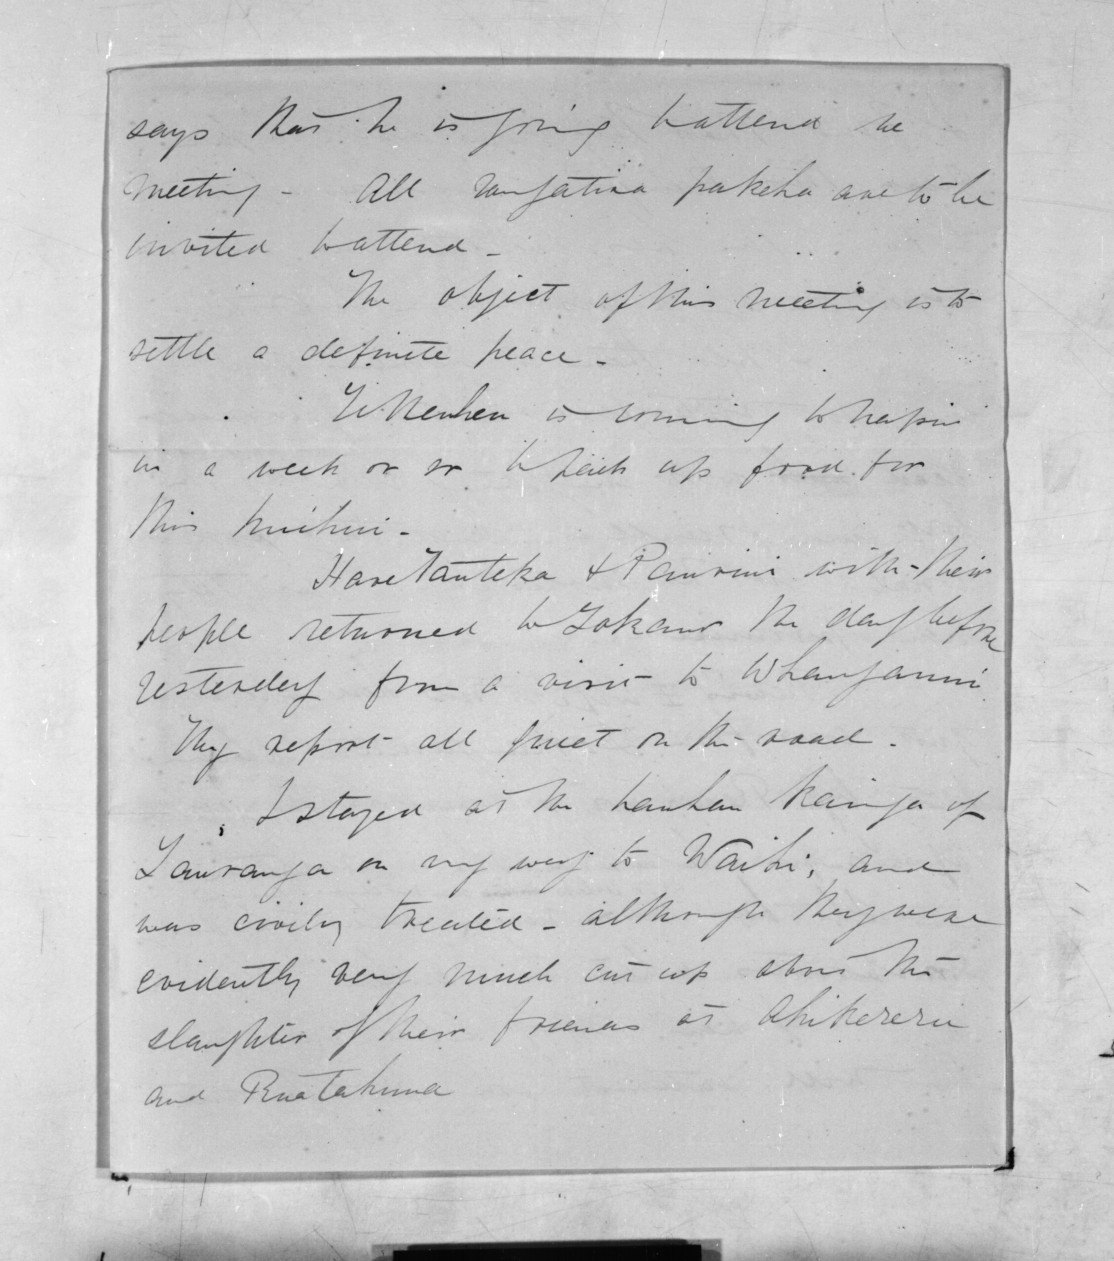 says that he is going to attend the
meeting - All rangatira pakeha are to be
invited to attend -
The object of this meeting is to
settle a definite peace -
Te Heuheu is coming to Napier
in a week or so to pack up food for
this huihui -
Hare Tauteka & Paurini with their
people returned to Tokanu the day before
yesterday from a visit to Whanganui
They report all quiet on the road .
I stayed at the hauhau kainga of
Tauranga on my way to Waihi; and
was civilly treated - although they were
evidently very much cut up about the
slaughter of their friends at Ahikereru
and Ruatahuna